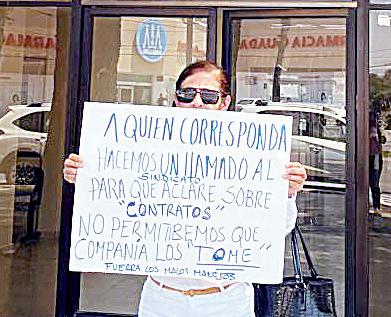 FARMACIA GUADA
A QUIEN CORRESPONDA
HACEMOS UN LLAMADO AL
SINDICATO
PARA QUE ACLARE SOBRE
"CONTRATOS"
NO PERMITIREMOS QUE
COMPAÑIA LOS "TOME"
FUERRA LOS MALOS MANEJOS